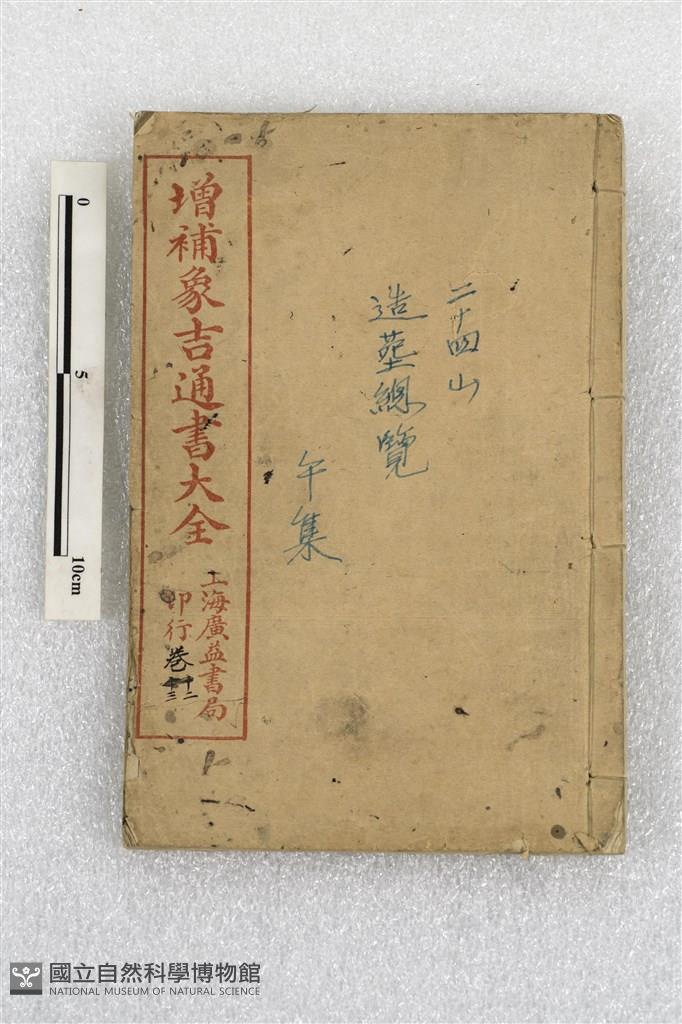 二十四山
造塟總覽
午集
增補象吉通書大全
上海廣益書局
印行
卷十二
十三
0
5
10cm
國立自然科學博物館
NATIONAL MUSEUM OF NATURAL SCIENCE